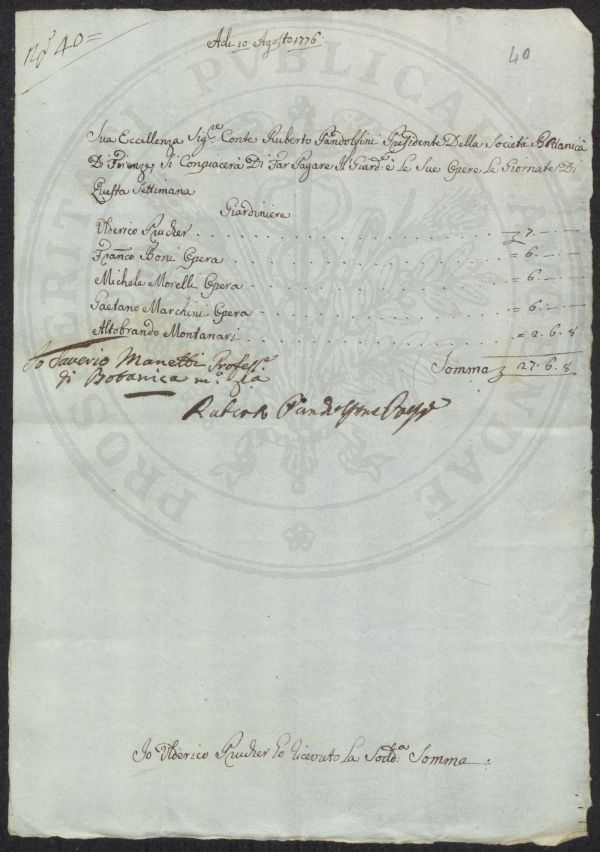 N.º 40=
Adi 10: Agosto 1776:
40
Sua Eccellenza Sig.re Conte Ruberto Pandolfini Presidente Della Società Botanica
Di Firenze, Si Conpiacerà Di Far Pagare Al Giard:e è Le Sue Opere Le Giornate Di
Questa Settimana
Giardiniere
Ulderico Prucher . . . 7. —
Franco Boni Opera . . . = 6. —
Michele Morelli Opera . . . = 6. —
Gaetano Marchini Opera . . . = 6. —
Altobrando Montanari . . . = 2. 6. 8
Somma 27. 6. 8
Io Saverio Manetti Profess.e
di Botanica m.º pia
Ruberto Pandolfini Pres.
Io Ulderico Prucher ho ricevuto La Sodd:a Somma :
PROSPERITATI PUBLICAE AUGENDAE